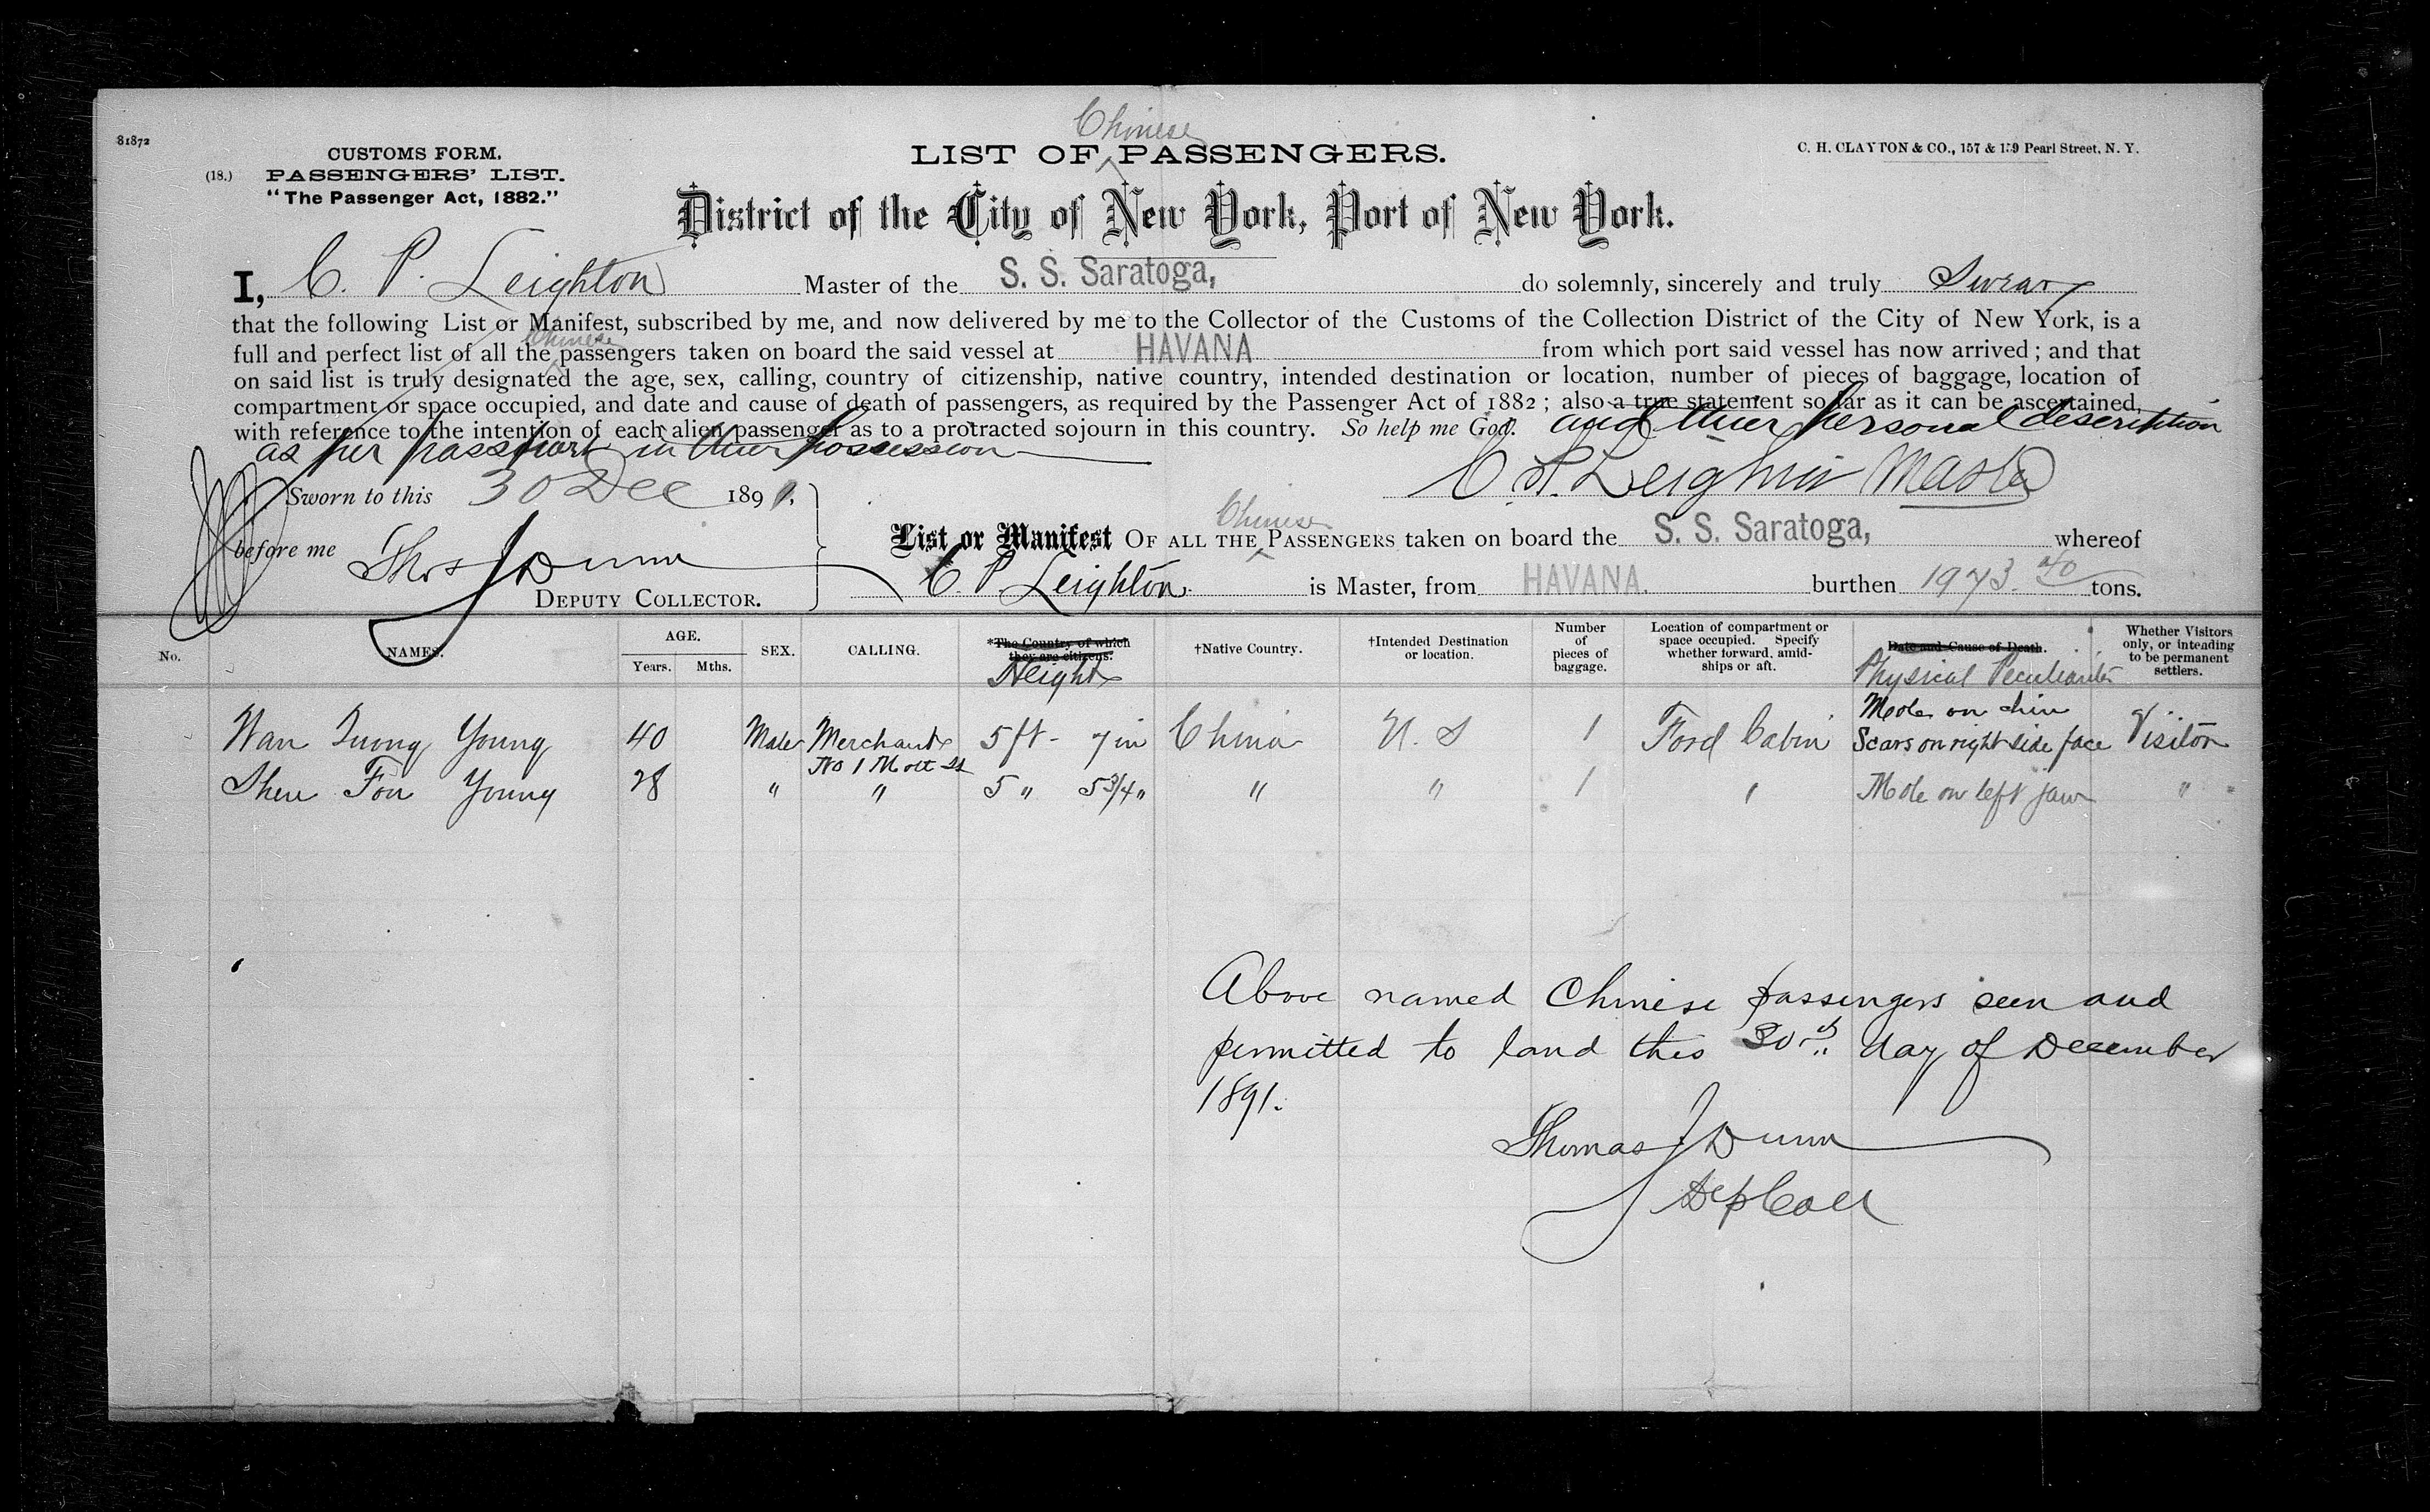 81872
CUSTOMS FORM.
(18.) PASSENGERS' LIST.
"The Passenger Act, 1882."
Chinese
LIST OF PASSENGERS.
C. H. CLAYTON & CO., 157 & 159 Pearl Street, N. Y.
District of the City of New York, Port of New York.
I, C. P. Leighton Master of the S. S. Saratoga, do solemnly, sincerely and truly Swear
that the following List or Manifest, subscribed by me, and now delivered by me to the Collector of the Customs of the Collection District of the City of New York, is a
Chinese
full and perfect list of all the passengers taken on board the said vessel at HAVANA from which port said vessel has now arrived; and that
on said list is truly designated the age, sex, calling, country of citizenship, native country, intended destination or location, number of pieces of baggage, location of
compartment or space occupied, and date and cause of death of passengers, as required by the Passenger Act of 1882; also a true statement so far as it can be ascertained,
with reference to the intention of each alien passenger as to a protracted sojourn in this country. So help me God. and their personal description
as per passport in their possession
C. P. Leighton Master
Sworn to this 30 Dec 1891.
before me Thos J Dunn
DEPUTY COLLECTOR.
Chinese
List or Manifest OF ALL THE PASSENGERS taken on board the S. S. Saratoga, whereof
C. P. Leighton is Master, from HAVANA. burthen 1973. 40 tons.
No. NAMES. AGE. Years. Mths. SEX. CALLING. *The Country of which they are citizens. Height †Native Country. †Intended Destination or location. Number of pieces of baggage. Location of compartment or space occupied. Specify whether forward, amidships or aft. Date and Cause of Death. Physical Peculiarities Whether Visitors only, or intending to be permanent settlers.
Mole on chin
Wan Quong Young 40 Male Merchant 5 ft - 7 in China U. S 1 Ford Cabin Scars on right side face Visitor
No 1 Mott St
Shee Fon Young 28 " " 5 " 5 3/4 " " " 1 " Mole on left jaw "
Above named Chinese passengers seen and
permitted to land this 30th day of December
1891.
Thomas J Dunn
Dep Coll